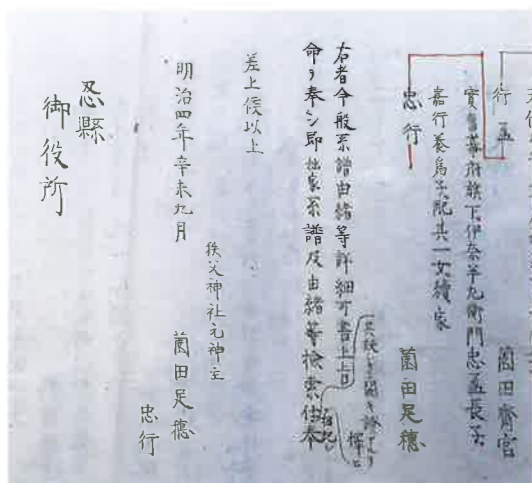 行孟
薗田齊宮
實舊幕府旗下伊奈半九衛門忠孟長子
嘉行養為子配其一女續家
忠行
薗田足穂
右者今般系譜由緒等詳細可書上旨
命ヲ奉シ即拙家系譜及由緒等検索仕奉
差上候以上
明治四年辛未九月
秩父神社元神主
薗田足穂
忠行
忍縣
御役所